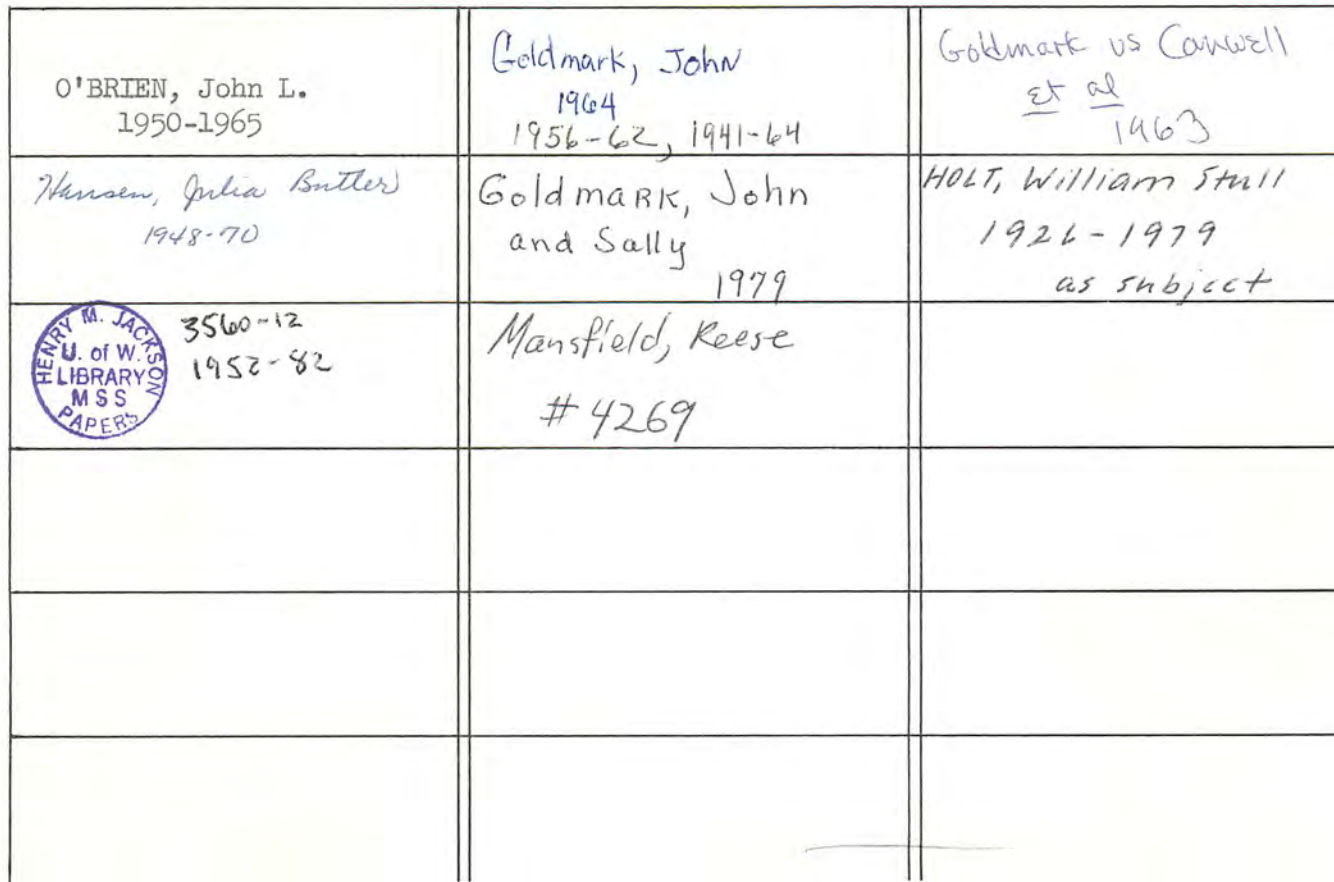 O'BRIEN, John L.
1950-1965
Goldmark, John
1964
1956-62, 1941-64
Goldmark vs Canwell
et al
1963
Hansen, Julia Butler
1948-70
Goldmark, John
and Sally
1979
HOLT, William Stull
1926-1979
as subject
HENRY M. JACKSON
U. of W.
LIBRARY
MSS
PAPERS
3560-12
1952-82
Mansfield, Reese
#4269